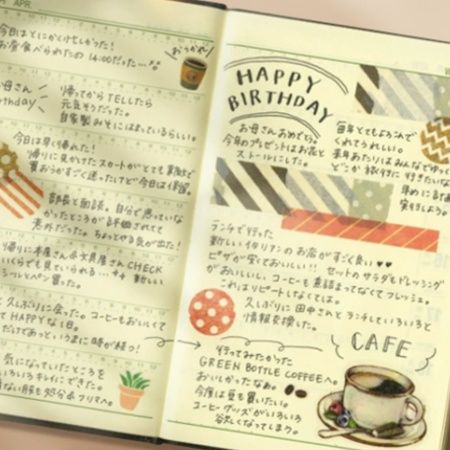 APR
今日はとにかくけしかった!
お昼食べられたの 14:00だった…
おつかれ!
お母さん
Birthday
帰ってからTELしたら
元気そうだった。
自家製みそにはまっているらしい。
今日は早く帰れた!
帰りに見かけたスカートがとても素敵で
買おうかすごく迷ったけど今日は保留。
部長と面談。自分で思っていな
かったところが評価されてて
意外だった。ちょっとやる気が出た!
帰りに本屋さん&文具屋さんCHECK
いくらでも見ていられる…
ペン買った。
久しぶりに会った。コーヒーもおいしくて
HAPPYな1日。
だけであっというまに時が経つ!
気になっていたところを
いろいろキレイにできた。
ない服も処分&フリマへ。
HAPPY
BIRTHDAY
お母さんおめでとう。
今年のプレゼントはお花と
ストールにした。
毎年とてもよろこんで
くれてうれしい。
来年あたりはみんなでゆっくり
どこか旅行に行きたいな
早めに計画
実行しよう。
ランチで行った
新しいイタリアンのお店がすごく良い♥♥
ピザが安くておいしい!! セットのサラダもドレッシング
がおいしい。コーヒーも煮詰まってなくてフレッシュ。
これはリピートしなくては。
久しぶりに田中さんとランチしていろいろと
情報交換した。
CAFE
行ってみたかった
GREEN BOTTLE COFFEEへ。
おいしかったなあ。
今度は豆も買いたい。
コーヒーグッズがいろいろ
欲しくなってしまう。